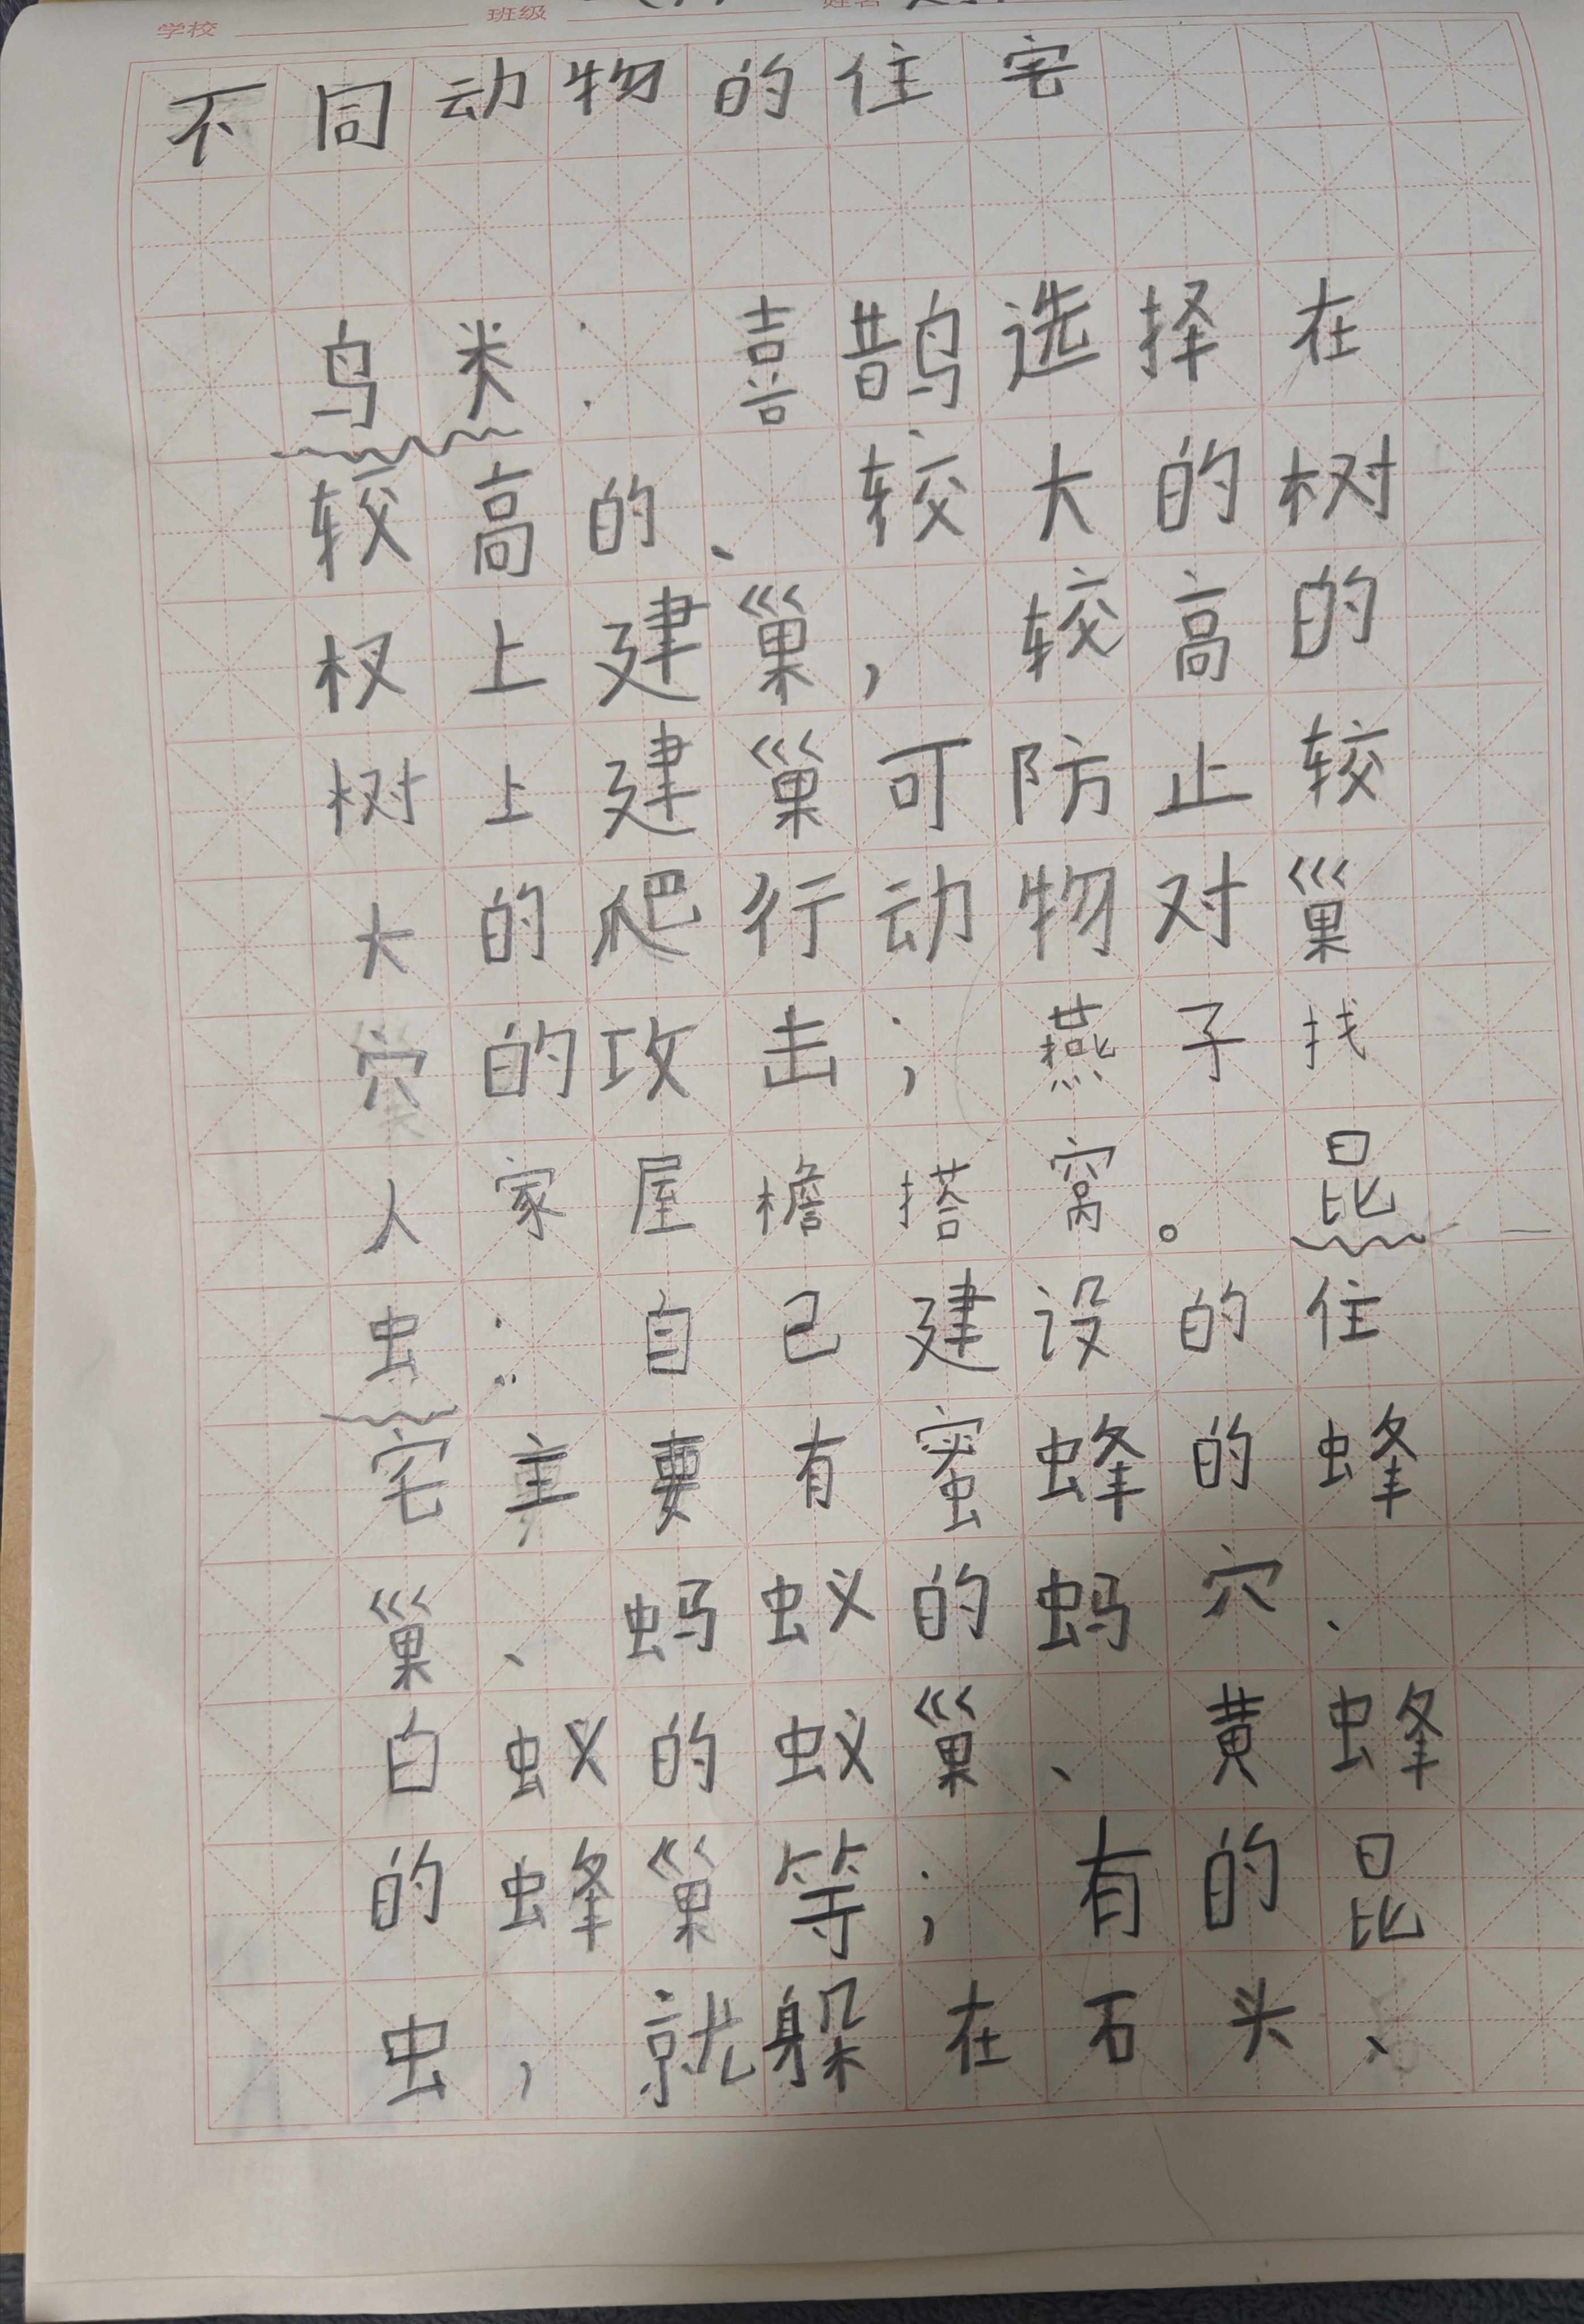 学校 班级 姓名
不同动物的住宅
鸟类：喜鹊选择在
较高的、较大的树
杈上建巢，较高的
树上建巢可防止较
大的爬行动物对巢
穴的攻击；燕子找
人家屋檐搭窝。昆
虫：自己建设的住
宅主要有蜜蜂的蜂
巢、蚂蚁的蚂穴、
白蚁的蚁巢、黄蜂
的蜂巢等；有的昆
虫，就躲在石头、